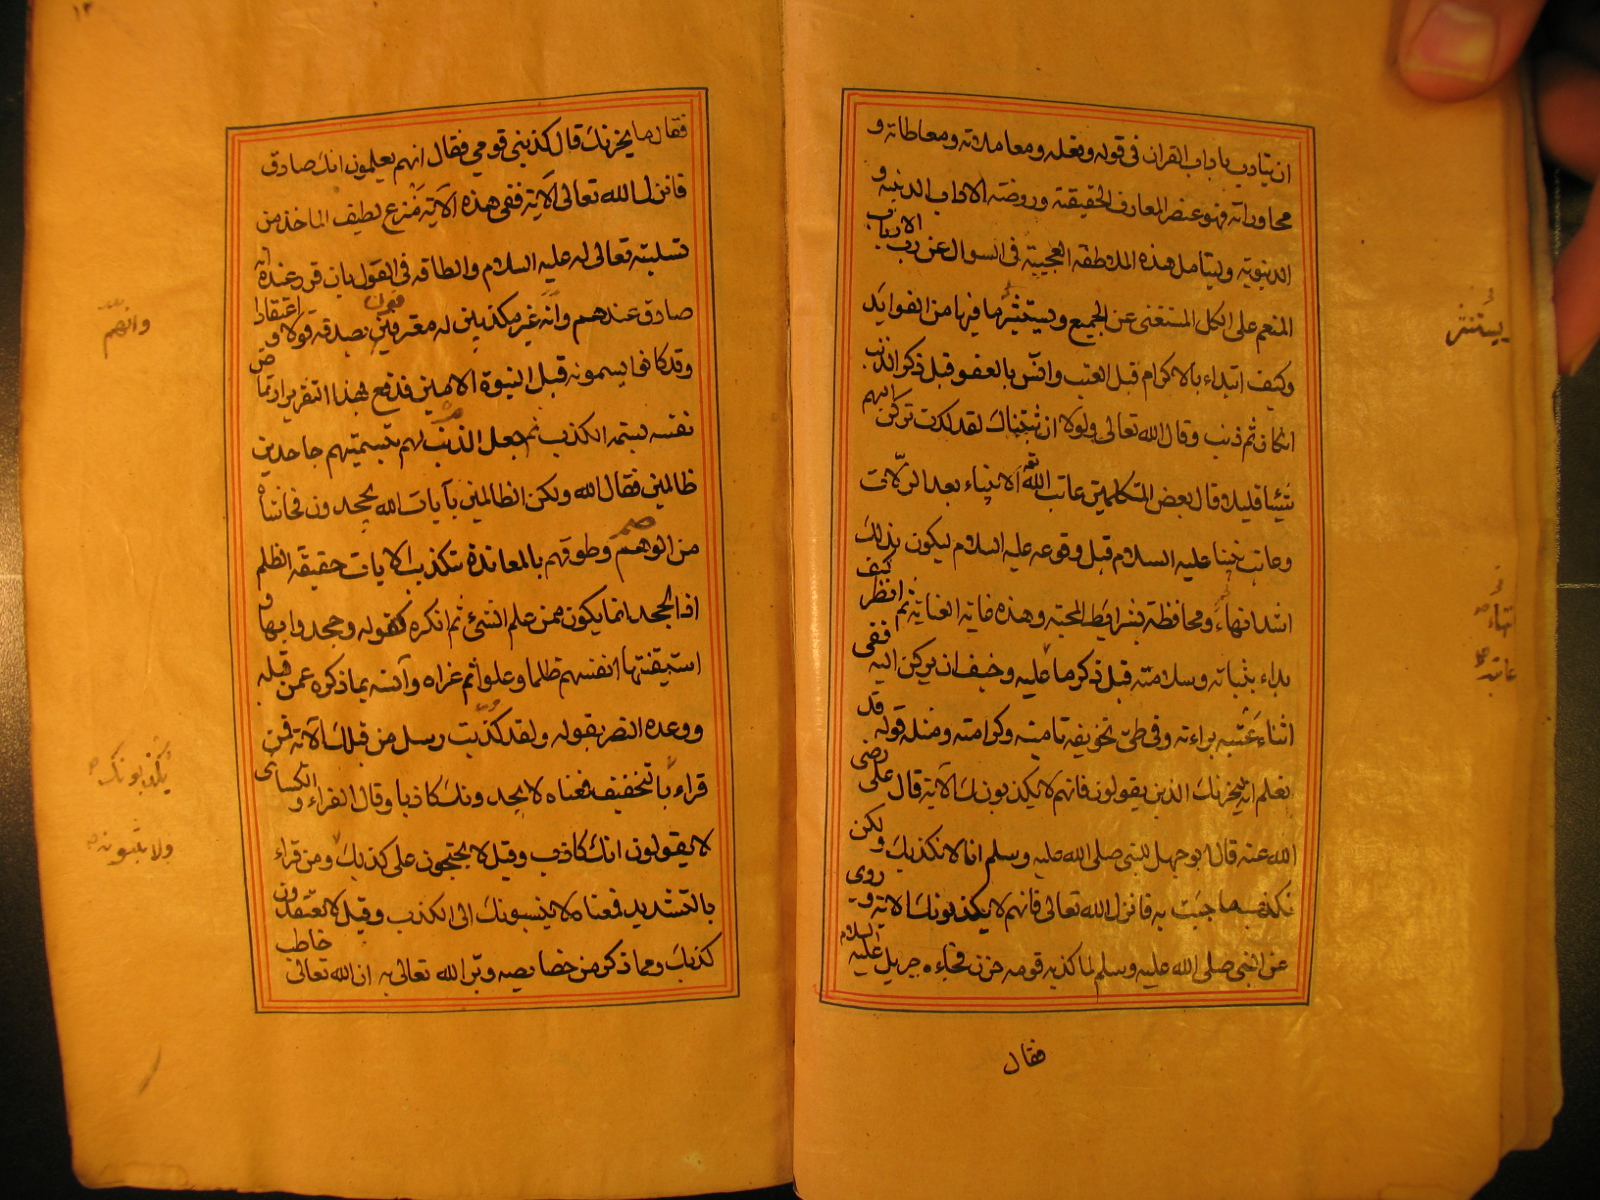 ان يتادب باداب القران فى قوله وفعله ومعاملاته ومعاطاته و
محاوراته فهو عنصر المعارف الحقيقته وروضته الاداب الدينيه و
الدنيويه وليتامل هذه الملاطفه العجيبة فى السوال عن رب الارباب
المنعم على الكل المستغنى عن الجميع ويستنثر ما فيها من الفوايد
وكيف ابتداء بالاكرام قبل العتب وانس بالعفو قبل ذكر الذنب
انكان ثم ذنب وقال الله تعالى ولولا ان ثبتناك لقد كدت تركن اليهم
شيئا قليلا وقال بعض المتكلمين عاتب الله الانبياء بعد الزلات
وعاتب نبينا عليه السلام قبل وقوعه عليه السلام ليكون بذلك
اشد انتهاء ومحافظة بشرايط المحبته وهذه غايه العنايه ثم انظر كيف
بداء بثباته وسلامته قبل ذكر ما عليه وخيف ان يركن اليه ففى
اثناء عتبه براءته وفى طى تخويفه تامينه وكرامته ومثله قوله قد
نعلم انه ليحزنك الذين يقولون فانهم لا يكذبونك الآية قال على رضى
الله عنه قال ابو جهل للنبى صلى الله عليه وسلم انا لا نكذبك ولكن
نكذب بما جئت به فانزل الله تعالى فانهم لا يكذبونك الاية وروى
عن النبى صلى الله عليه وسلم لما كذبه قومه حزن فجاءه جبريل عليه السلام
فقال
يستنثر
انتهاء
عاتب
١٣
فقال ما يحزنك قال كذبنى قومى فقال انهم يعلمون انك صادق
فانزل الله تعالى الآية ففى هذه الآية منزع لطيف الماخذ من
تسليته تعالى له عليه السلام والطافه فى القول بان قرر عنده انه
صادق عندهم وانه غير مكذبين له معترفين بصدقه قولا و اعتقادا
وقد كانوا يسمونه قبل النبوة الامين فدفع بهذا التقرير ارتماض
نفسه بسمه الكذب ثم جعل الذنب لهم بتسميتهم جاحدين
ظالمين فقال الله ولكن الظالمين بآيات الله يجحدون فحاشاه
من الوهم وطوقهم بالمعانده بتكذيب الايات حقيقه الظلم
اذ الجحد انما يكون ممن علم الشئ ثم انكره كقوله وجحدوا بها و
استيقنتها انفسهم ظلما وعلوا ثم عزاه وآنسه بما ذكره عمن قبله
ووعده النصر بقوله ولقد كذبت رسل من قبلك الآية فمن
قراء بالتخفيف فمعناه لا يجدونك كاذبا وقال الفراء و الكسائى
لا يقولون انك كاذب وقيل لا يحتجون على كذبك ومن قراء
بالتشديد فمعناه لا ينسبونك الى الكذب وقيل لا يعتقدون
كذبك ومما ذكر من خصايصه وبر الله تعالى به ان الله تعالى خاطب
وانهم
يكذبونك
ولا يثبتونه